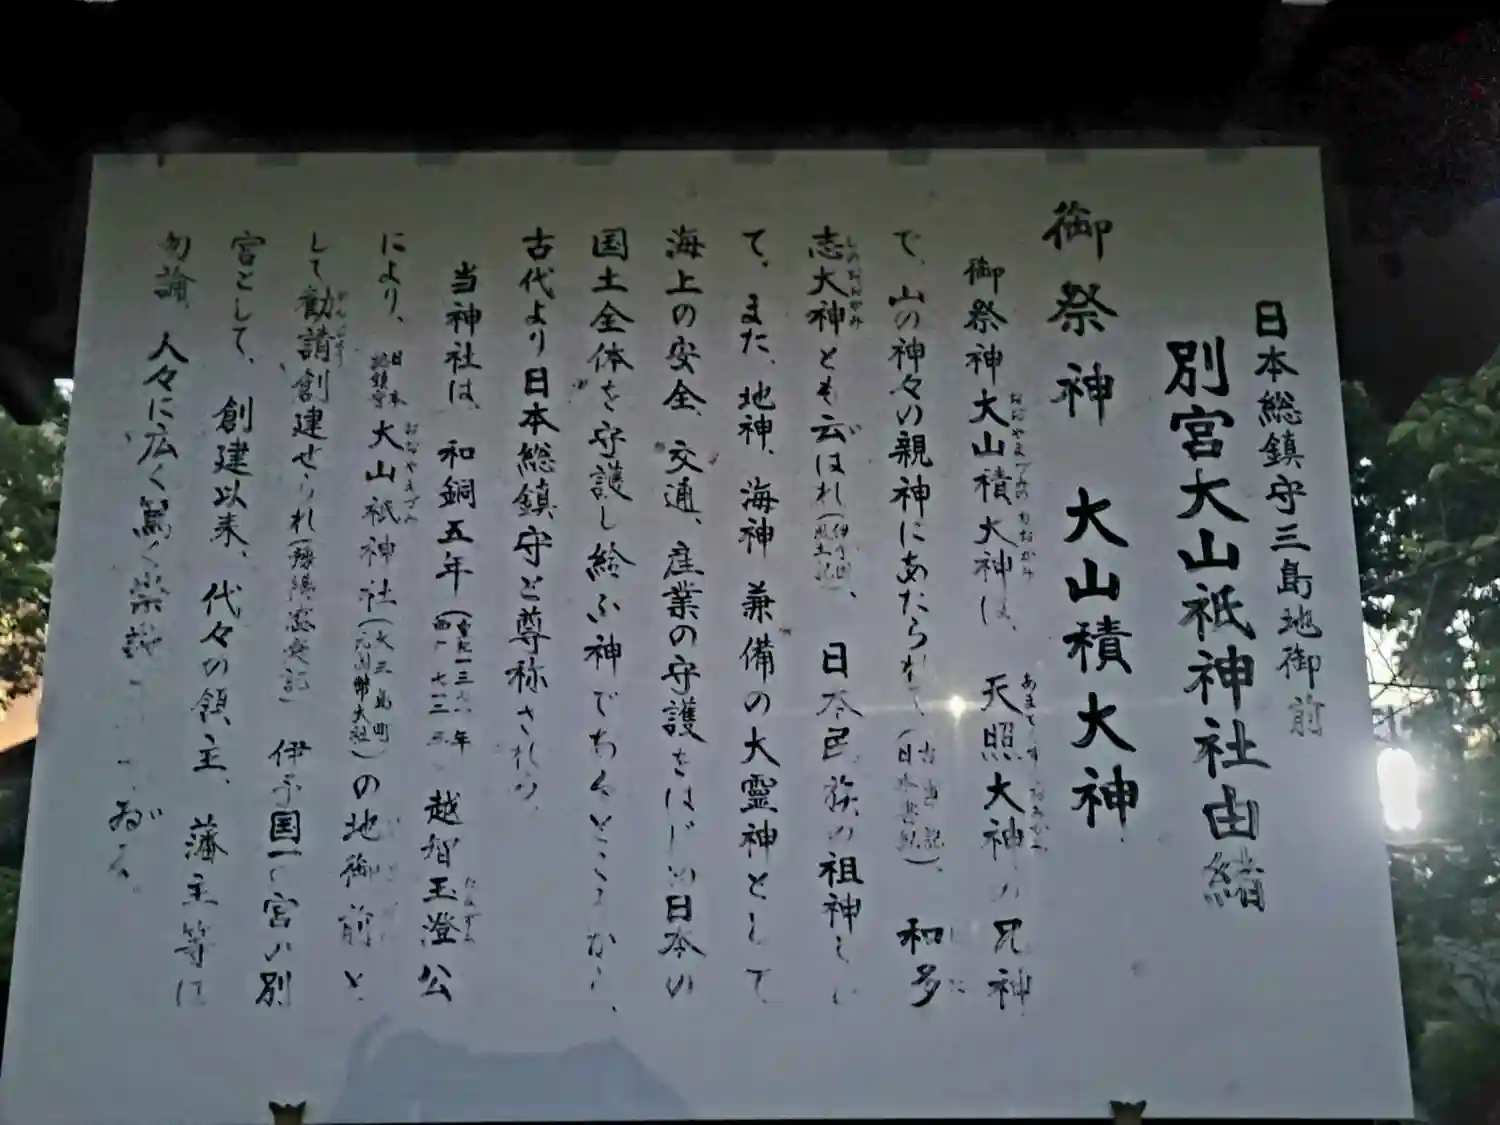 日本総鎮守三島地御前
別宮大山祇神社由緒
御祭神 大山積大神
御祭神大山積大神は、天照大神の兄神
で、山の神々の親神にあたられ(古事記日本書紀)、和多
志大神とも云はれ(伊予国風土記)、日本民族の祖神として
て、また、地神、海神兼備の大霊神として
海上の安全、交通、産業の守護をはじめ日本の
国土全体を守護し給ふ神であるところから、
古代より日本総鎮守と尊称される。
当神社は、和銅五年(皇紀一三七二年 西暦七一二年)越智玉澄公
により、日本総鎮守大山祇神社(大三島町 元国幣大社)の地御前と
して勧請創建せられ() 伊予国一の宮の別
宮として、創建以来、代々の領主、藩主等は
勿論、人々に広く篤く崇敬